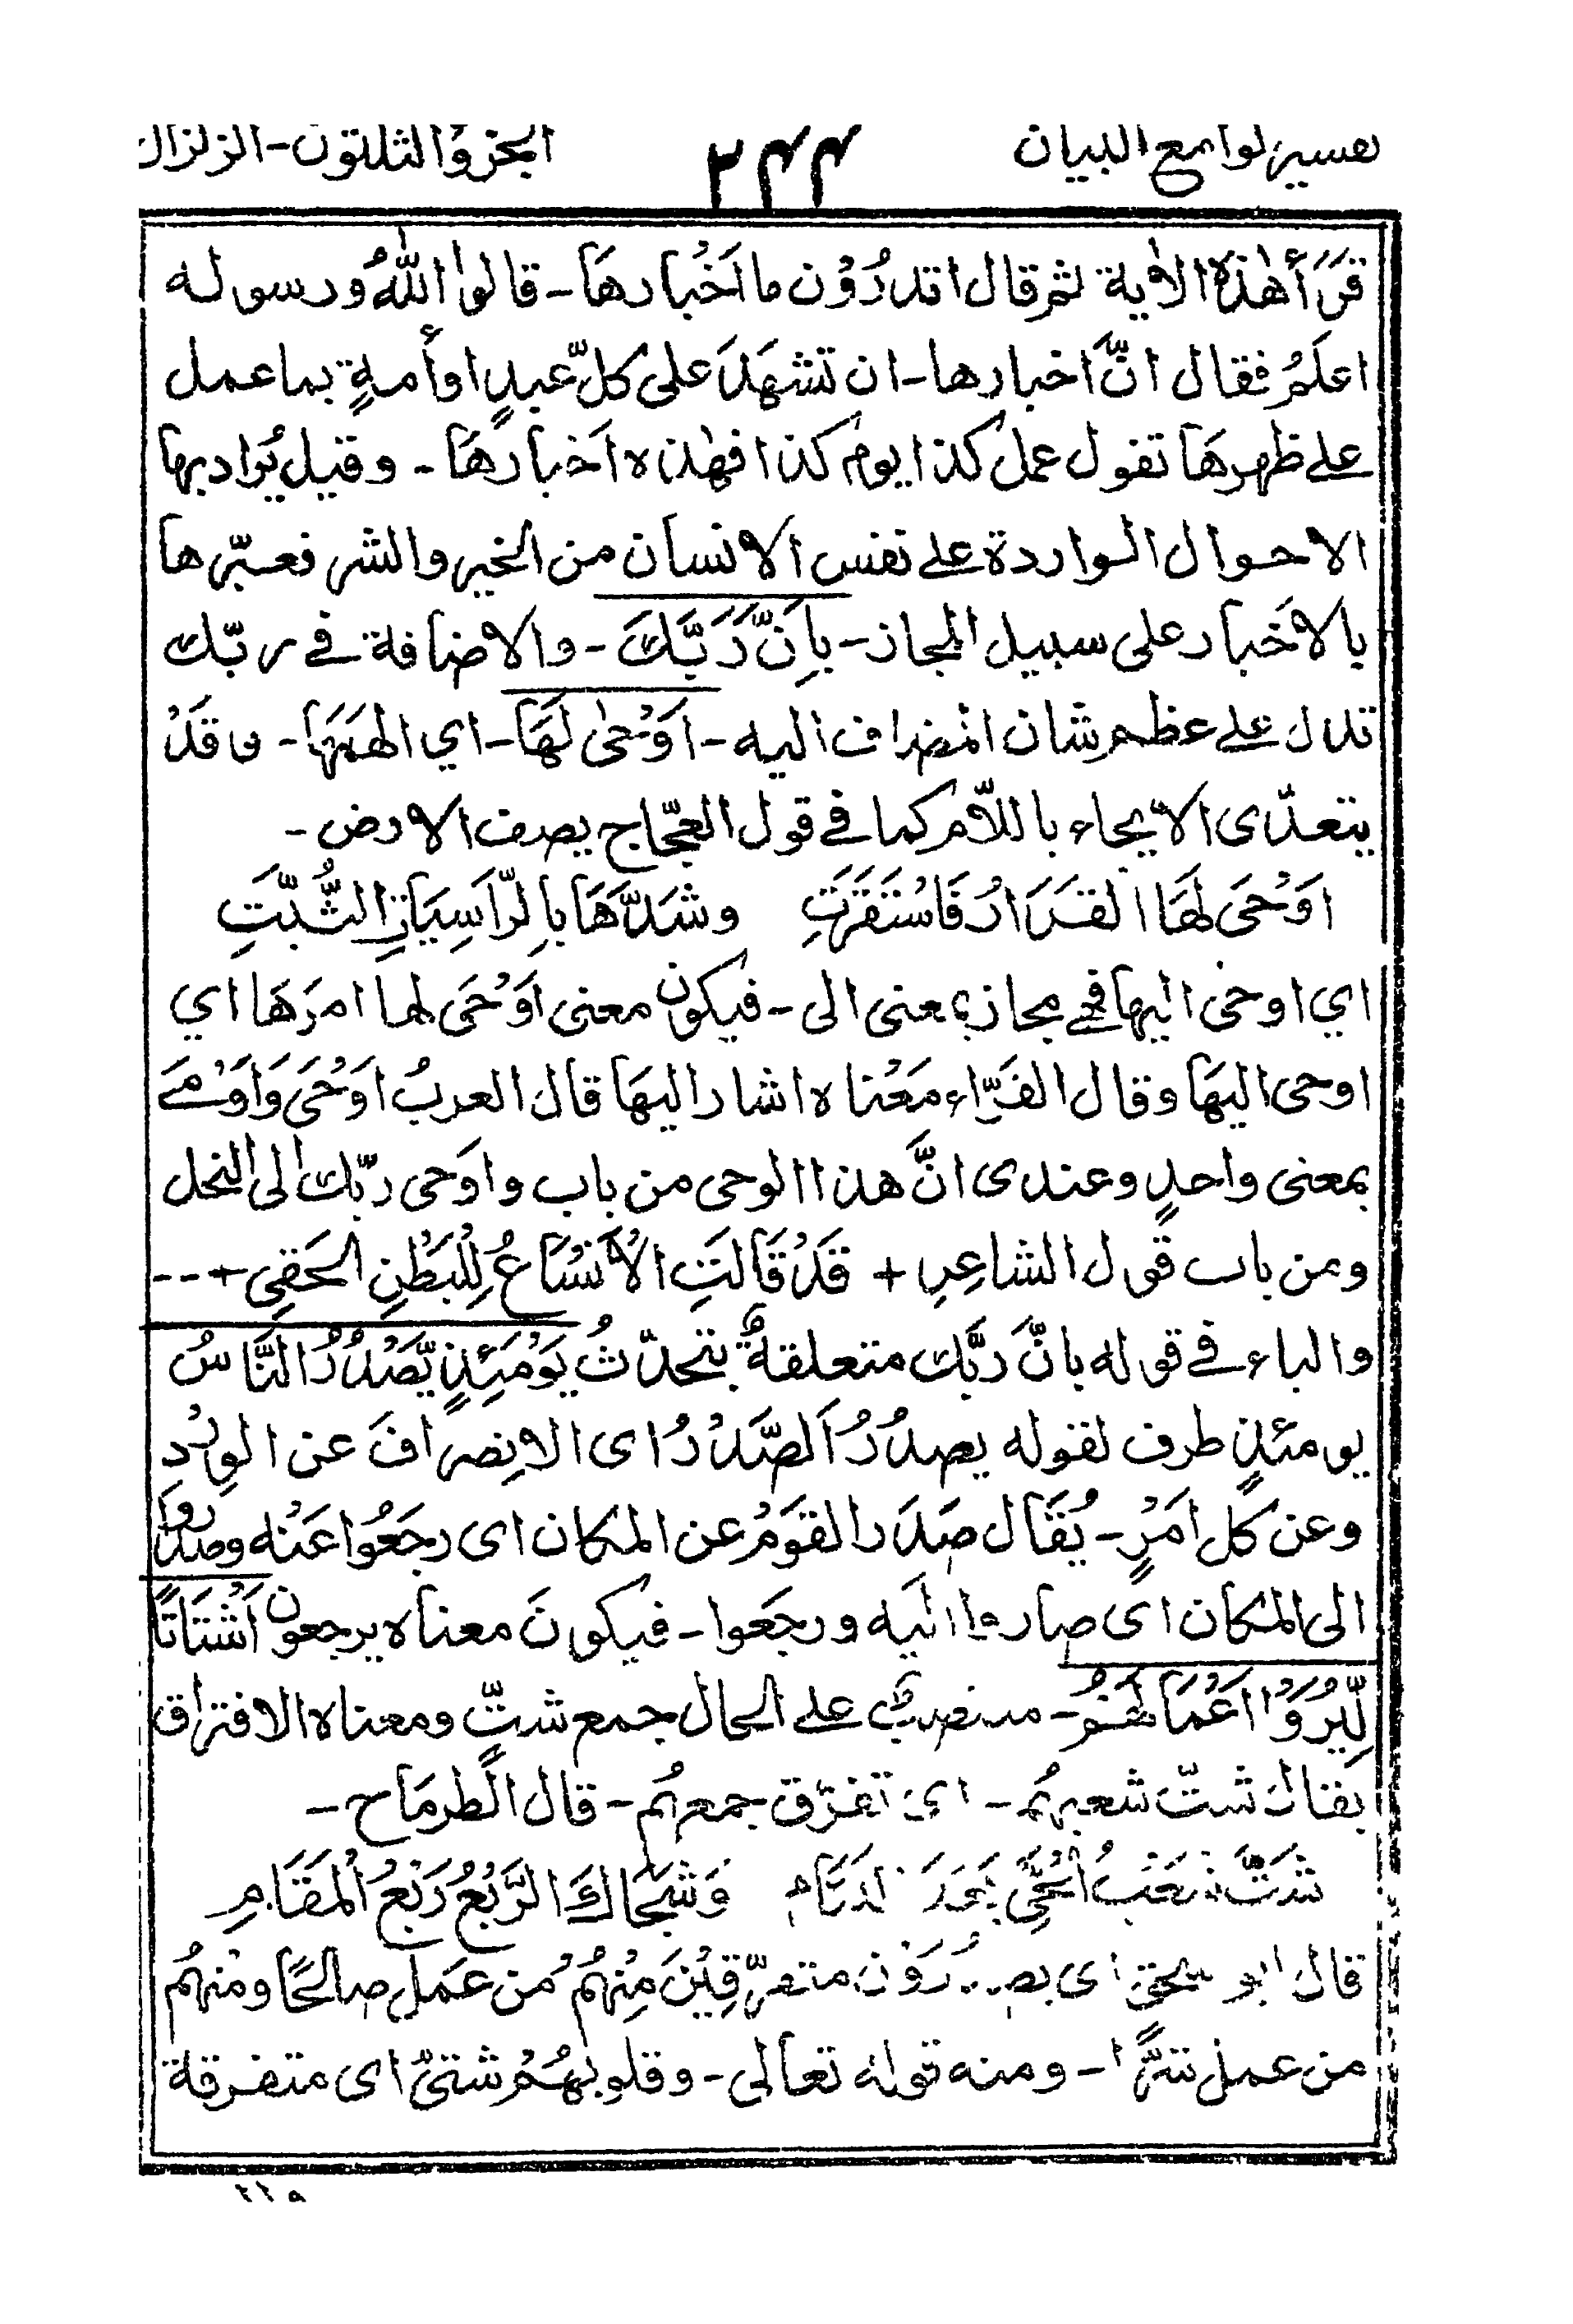 تفسير لوامع البيان ٢٤٤ الجزؤ الثلثون-الزلزال
قَرَأَ هٰذهِ الاٰية ثم قال اتدرُوْن ما اَخْبارهَا-قالوا اللّٰهُ ورسوله
اعلَمُ فقال انَّ اخبارها-ان تشهَدَ على كلّ عبدٍ او أمةٍ بما عمل
على ظهرهَا تقول عمل كذا يوم كذا فهٰذه اَخبارهَا- وقيل يُراد بها
الاحوال الواردة على نفس الانسان من الخير والشر فعبّرها
بالاَخبار على سبيل المجاز-بِاَنَّ رَبَّكَ-والاضافة في ربّك
تدل على عظم شان المضاف اليه-اَوْحٰى لَهَا-اي الهَمَهَا-وقَدْ
يتعدّى الايحاء باللّام كما في قول العجّاج يصف الارض-
اَوْحَى لَهَا القَرَارُ فَاسْتَقَرَتِ وشَدَّهَا بِالرّاسِيَاتِ الثُّبَّتِ
اي اوحى اليها فهي مجاز بمعنى الى-فيكون معنى اَوْحَى لها امرَهَا اي
اوحى اليهَا وقال الفَرّاء مَعْناه اشار اليهَا قال العربُ اَوْحَى وَاَوْمَے
بمعنى واحدٍ وعندى انَّ هذا الوحى من باب واَوحى ربّك الى النحل
ومن باب قول الشاعِرِ + قَدْ قَالَتِ الْاَنْسَاعُ لِلْبَطْنِ الحَقِي+--
والباء في قوله بانَّ ربَّك متعلقةٌ بتحدّثُ يَوْمَئِذٍ يَّصْدُرُ النَّاسُ
يومئذٍ ظرف لقوله يصدُرُ اَلصَّدْرُ اى الاِنصرافَ عن الوِرْدِ
وعن كل اَمْرٍ-يُقَال صَدَر القَوْمُ عن المكان اى رجَعُوا عَنْه وصدروا
الى المكان اى صاروا اليَه ورجَعوا-فيكونَ معناه يرجعون اَشْتَاتًا
لِّيُرَوْا اَعْمَالَهُمْ-منصوبٌ على الحال جمع شتٍّ ومعناه الافتراق
يقال شتّ شعبهُم- اى تفرّق جمعهُم-قال الطرمَاح-
شَتَّ شَعْبُ الْحَيِّ بَعْدَ وَشَجَاكَ الرَّبْعُ رَبْعُ الْمَقَامِ
قال ابو اى متفرّقِيْنَ مِنْهُمْ من عَمل صالحًا ومنهم
من عمل شرًّا-ومنه قوله تعالى-وقلوبهُمْ شتىّٰ اى متفرقة